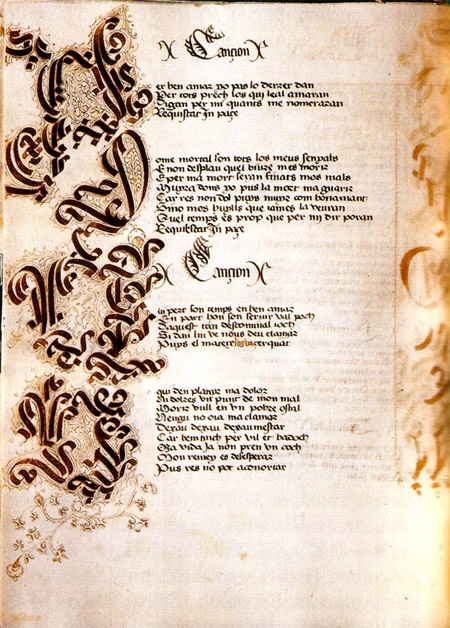 Cançion
er ben amar yo pas lo derrer dan
Per tots prech los qui leal amaran
Digan per mi quants me nomeraran
Requiscat In paçe
ome mortal son tots los meus senyals
E non desplau quel viure mes morir
E per ma mort seran finats mos mals
dons yo pus la mort ma guarir
Car res non dol puys muyr com bon amant
Sino mos hulls que iames la veuran
Quel temps es prop que per mi dir poran
Requiscat In paçe
Cançion
pert son temps en ben amar
En part hon son seruir val poch
Daquest tan descominal ioch
Si dan li ve nous deu clamar
Puys el mateix
qui den planyer ma dolor
Ni dolres vn punt de mon mal
Morir vull en vn pobre ostal
Nengu no oia ma clamor
Dexau dexau dexaum estar
Car ben tinch per vil et badoch
Qui vida Ja non pren vn toch
Mon remey es desesperar
Pus res no pot aconortar